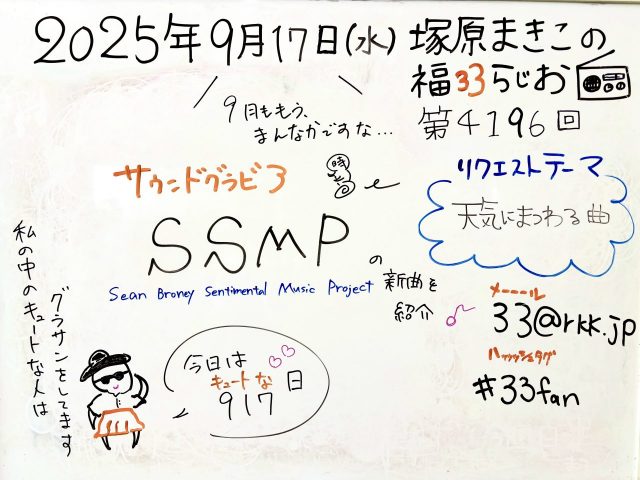 2025年9月17日(水) 塚原まきこの
福33らじお
第4196回
9月ももう、
まんなかですな…
サウンドグラビ3
SSMP
の
新曲を
紹介
Sean Broney Sentimental Music Project
リクエストテーマ
天気にまつわる曲
メーーール
33@rkk.jp
ハッッシュタグ
#33fan
今日は
キュートな
917日
私の中のキュートな人は
グラサンをしてます